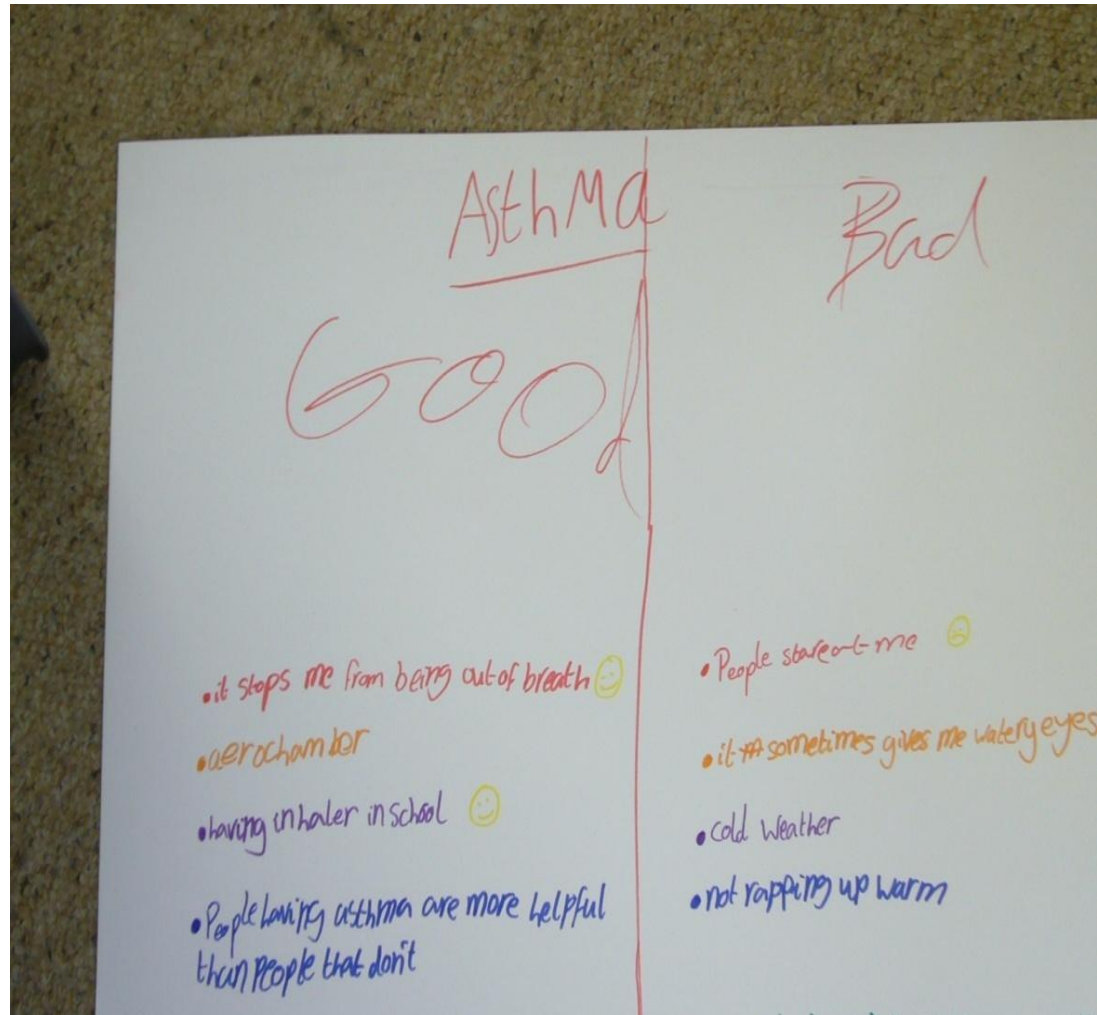 Asthma
Good
• it stops me from being out of breath
• aerochamber
• having inhaler in school
• People having asthma are more helpful
than people that don't
Bad
• People stare at me
• it sometimes gives me watery eyes
• cold weather
• not rapping up warm